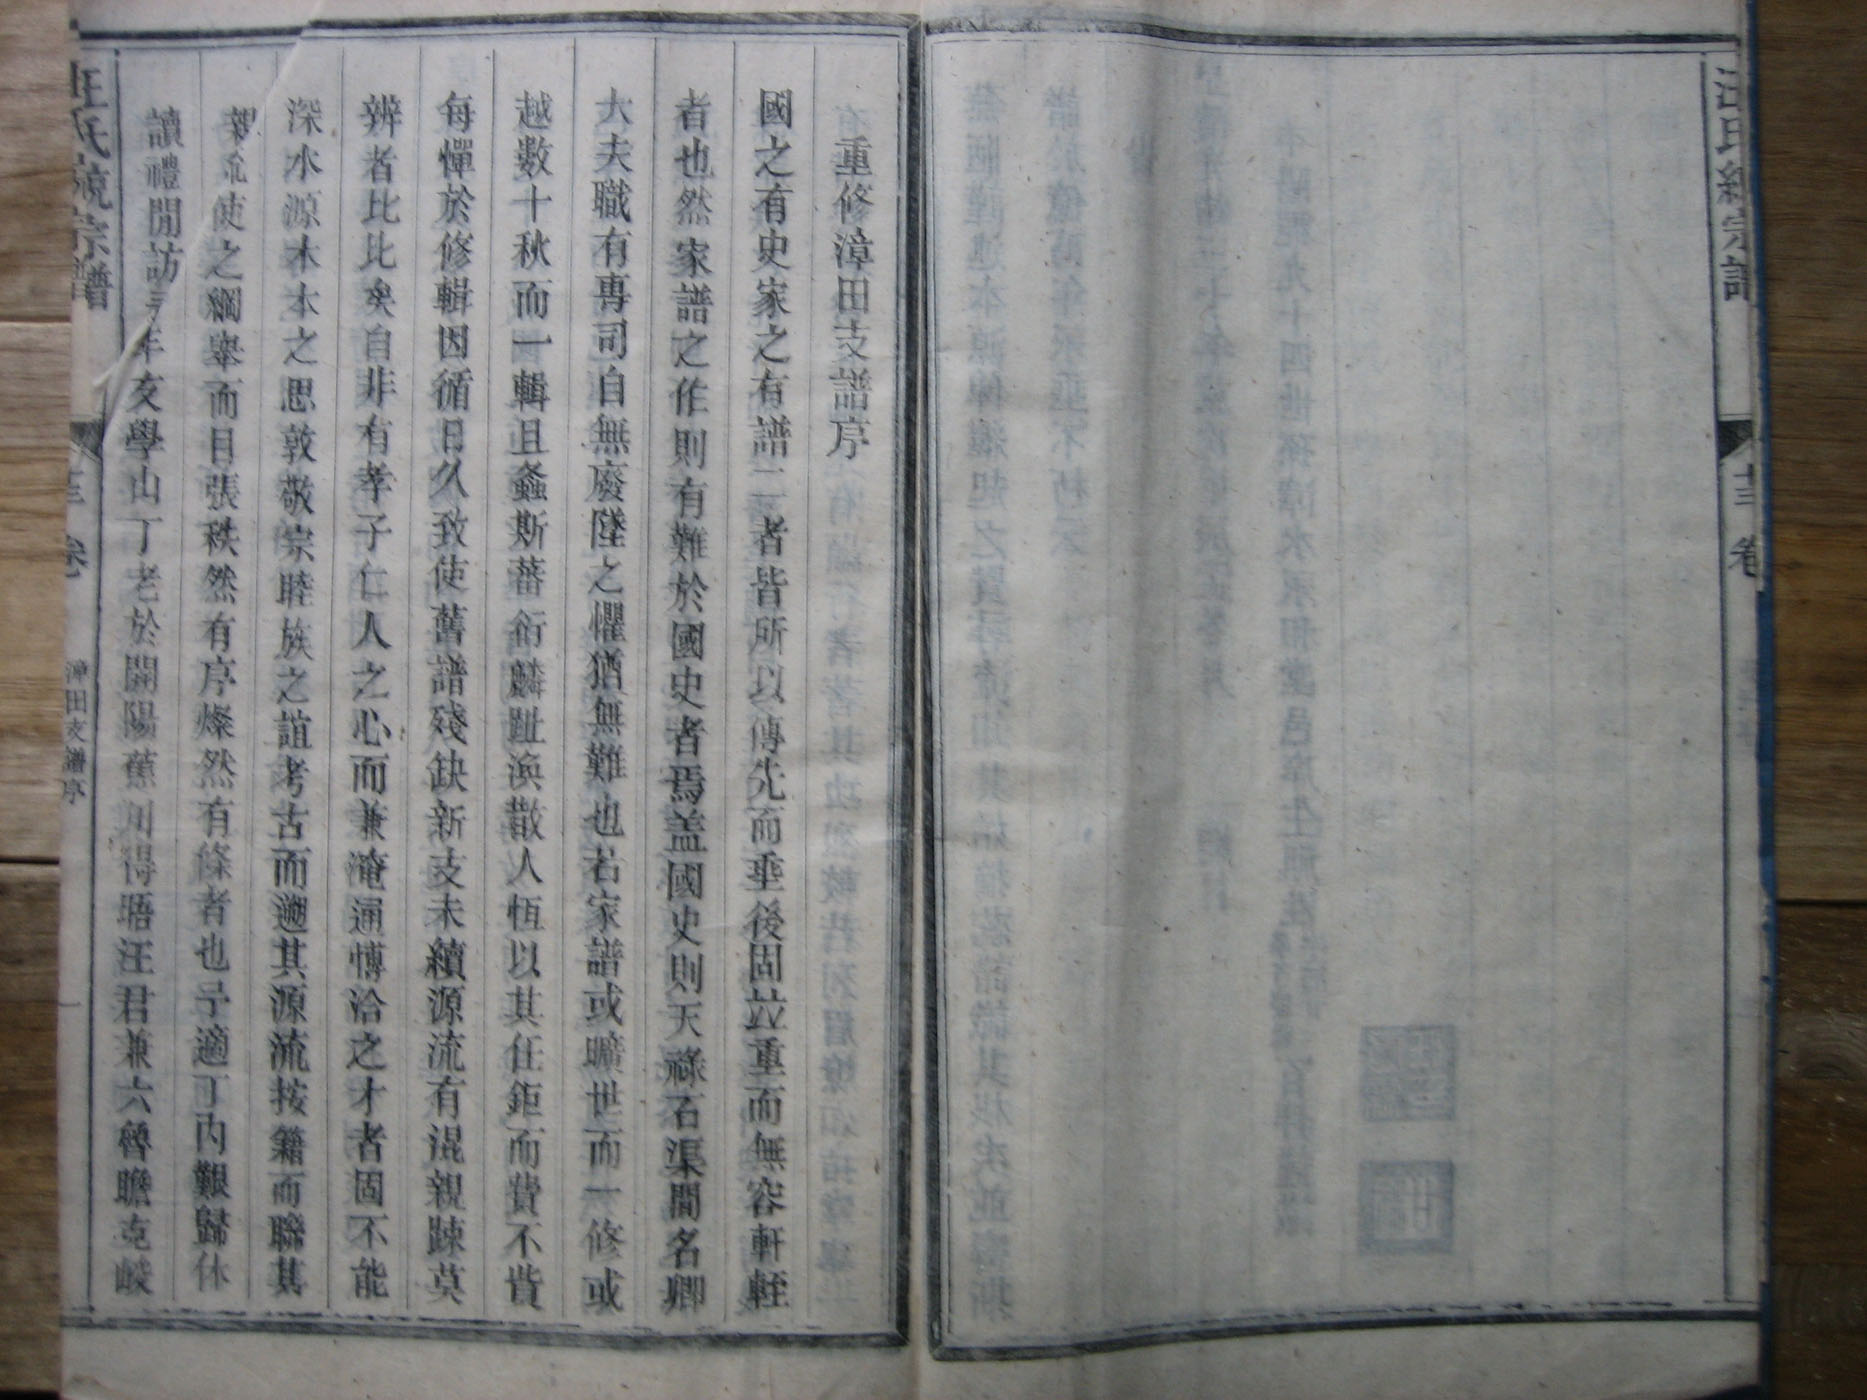 汪氏統宗譜
十三卷
重修漳田支譜序
國之有史家之有譜二者皆所以傳先而垂後固並重而無容軒輊
者也然家譜之作則有難於國史者焉盖國史則天祿石渠間名卿
大夫職有專司自無廢墜之懼猶無難也若家譜或曠世而一修或
越數十秋而一輯且螽斯蕃衍麟趾渙散人恆以其任鉅而費不貲
每憚於修輯因循日久致使舊譜殘缺新支未續源流有混親踈莫
辨者比比矣自非有孝子仁人之心而兼淹通博洽之才者固不能
深水源木本之思敦敬宗睦族之誼考古而遡其源流按籍而聯其
流使之綱舉而目張秩然有序燦然有條者也予適丁內艱歸休
讀禮閒訪年友學山丁老於開陽蕉川得晤汪君兼六魯瞻克峻
汪氏統宗譜
十三卷
漳田支譜序
一